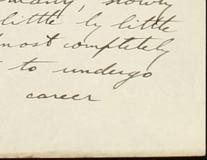 many, slowly
little by little
most completely
to undergo
career